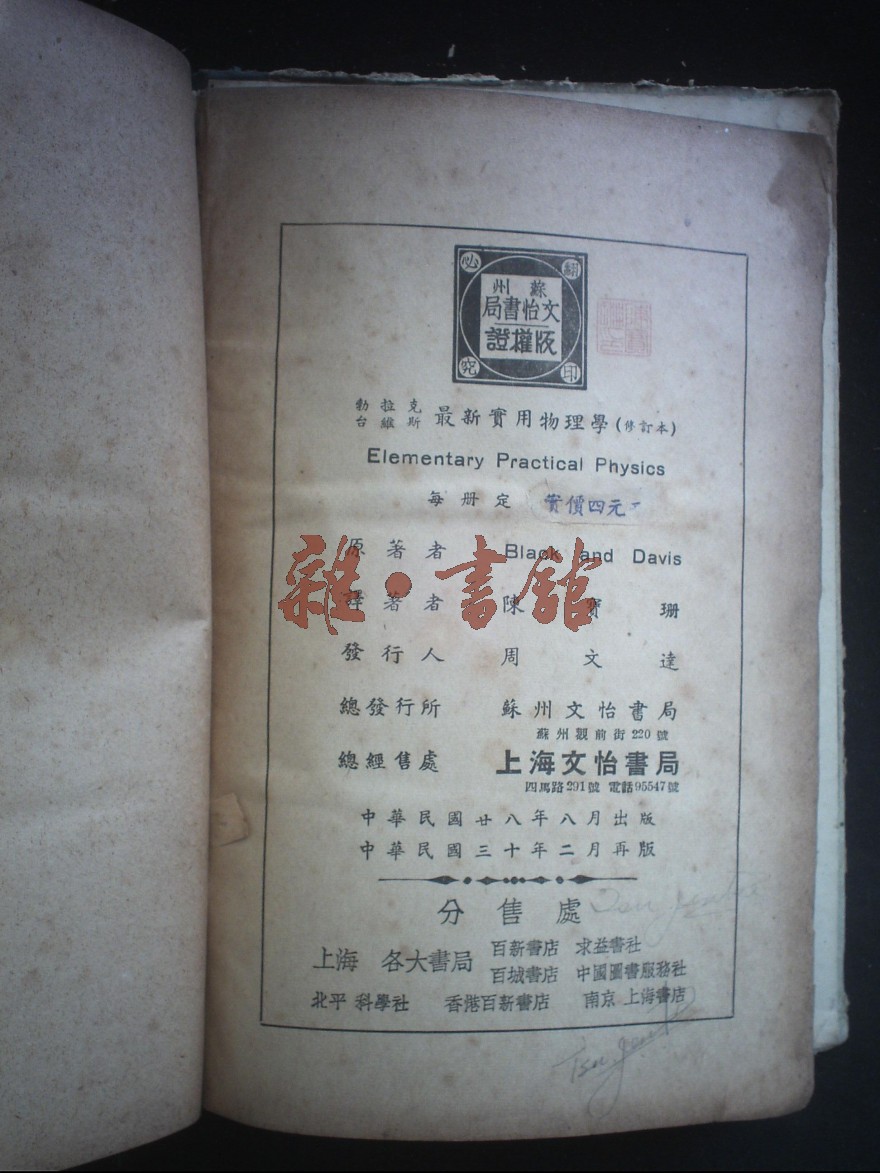 翻印必究
蘇州
文怡書局
版權證
勃拉克
台維斯 最新實用物理學(修訂本)
Elementary Practical Physics
每冊定 實價四元
原著者 Black and Davis
譯著者 陳寶珊
發行人 周文達
總發行所 蘇州文怡書局
蘇州觀前街220號
總經售處 上海文怡書局
四馬路291號 電話95547號
中華民國廿八年八月出版
中華民國三十年二月再版
分售處
上海 各大書局 百新書店 求益書社
百城書店 中國圖書服務社
北平 科學社 香港百新書店 南京 上海書店
雜·書館